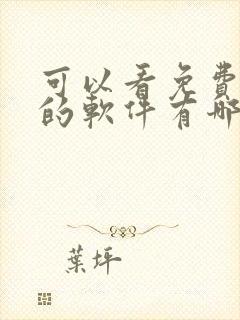 可以看免費
的軟件有哪
葉坪